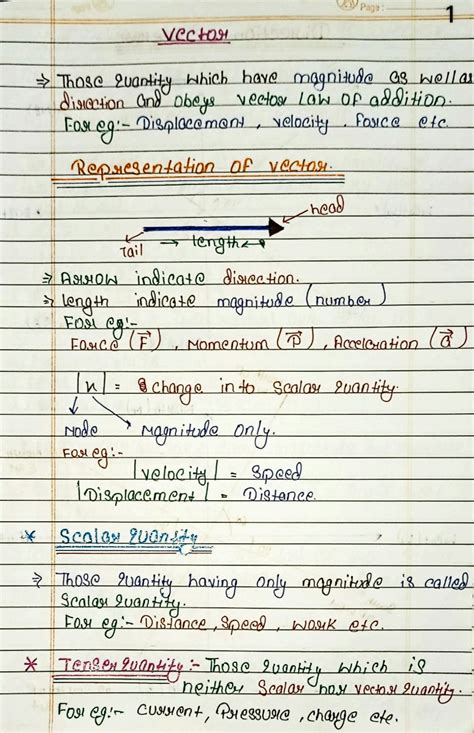 Page:
1
Vector
⇒ Those quantity which have magnitude as well as
direction and obeys vector law of addition.
For eg:- Displacement, velocity, force etc.
Representation of vector.
head
Tail → length ←
⇒ Arrow indicate direction.
⇒ length indicate magnitude (number)
For eg:-
Force (F⃗), Momentum (P⃗), Acceleration (a⃗)
|x| = change in to Scalar quantity.
Mode Magnitude only.
For eg:-
|velocity| = Speed
|Displacement| = Distance.
* Scalar quantity
⇒ Those quantity having only magnitude is called
Scalar quantity.
For eg:- Distance, Speed, work etc.
* Tenser quantity:- Those quantity which is
neither Scalar nor vector quantity.
For eg:- current, Pressure, charge etc.